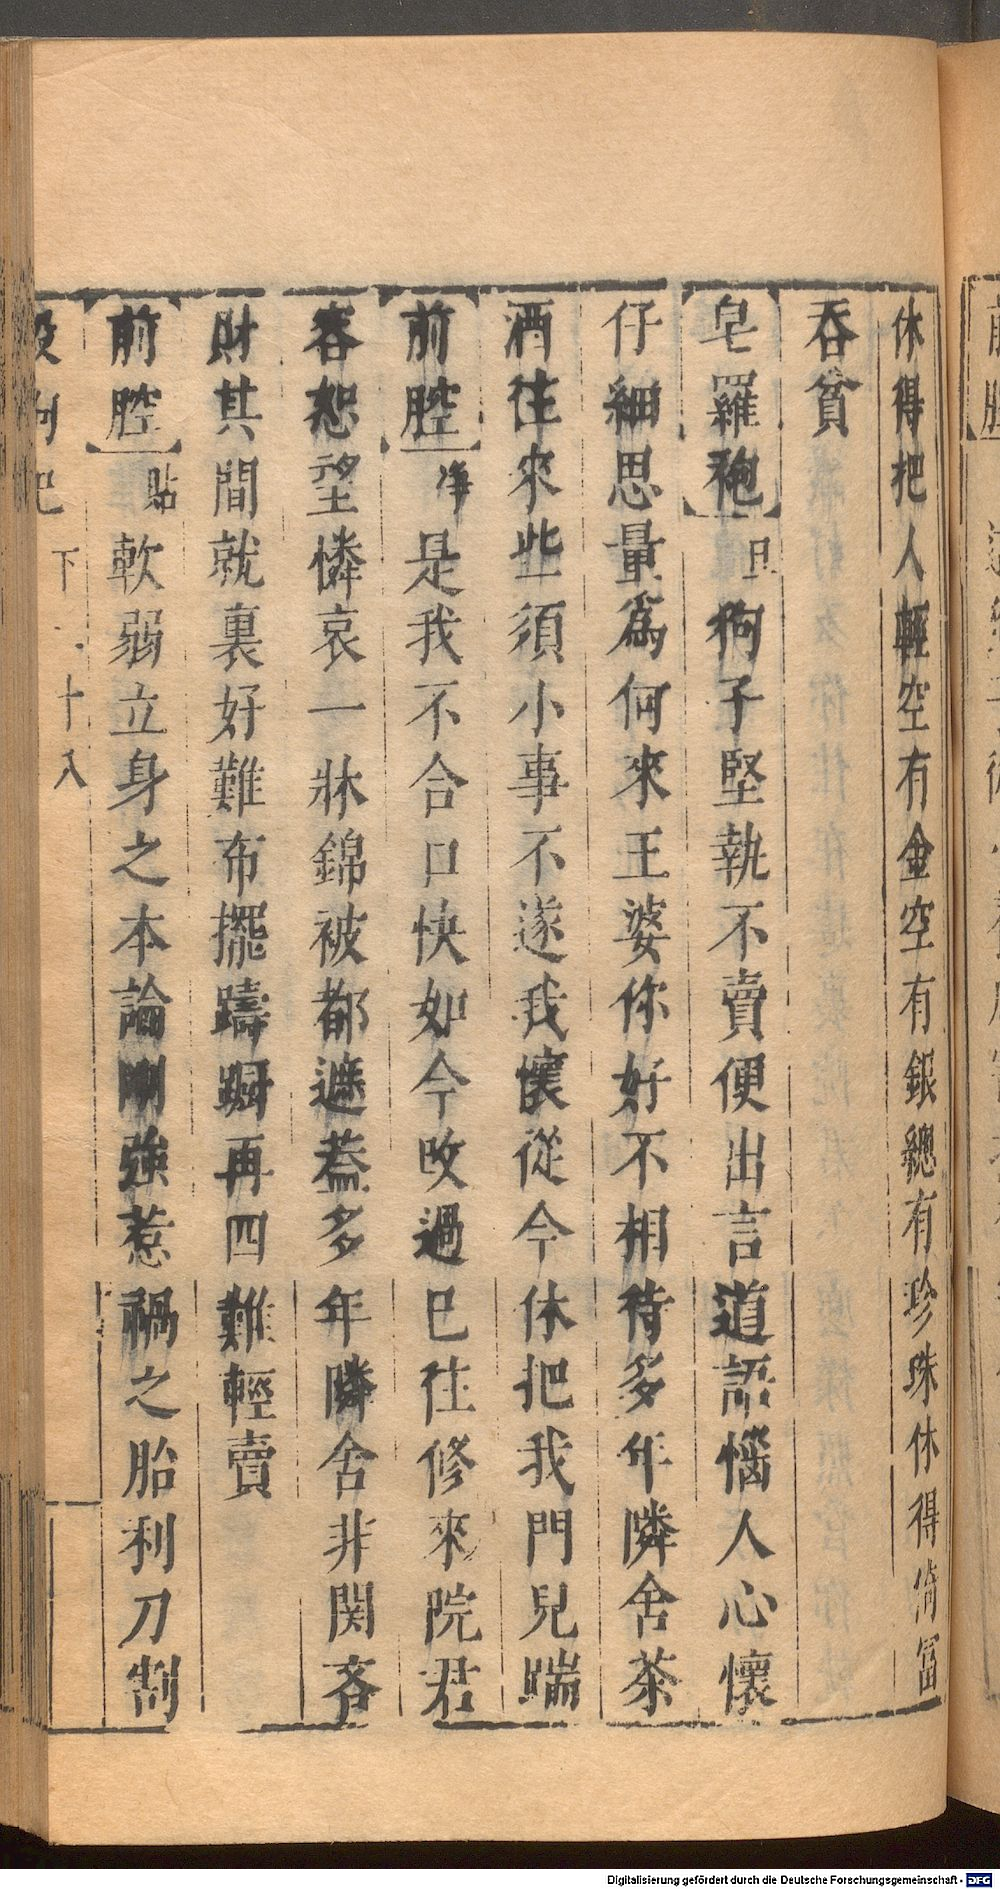 休得把人輕空有金空有銀總有珍珠休得倚富
吞貧
皂羅袍 旦 狗子堅執不賣便出言道語惱人心懷
仔細思量爲何來王婆你好不相待多年隣舍茶
酒往來些須小事不遂我懷從今休把我門兒踹
前腔 净 是我不合口快如今改過已往修來院君
容恕望憐哀一牀錦被都遮蓋多年隣舍非関吝
財其間就裏好難布擺躊躕再四難輕賣
前腔 貼 軟弱立身之本論剛強惹禍之胎利刀割
殺狗巴 下 十八
Digitalisierung gefördert durch die Deutsche Forschungsgemeinschaft - DFG